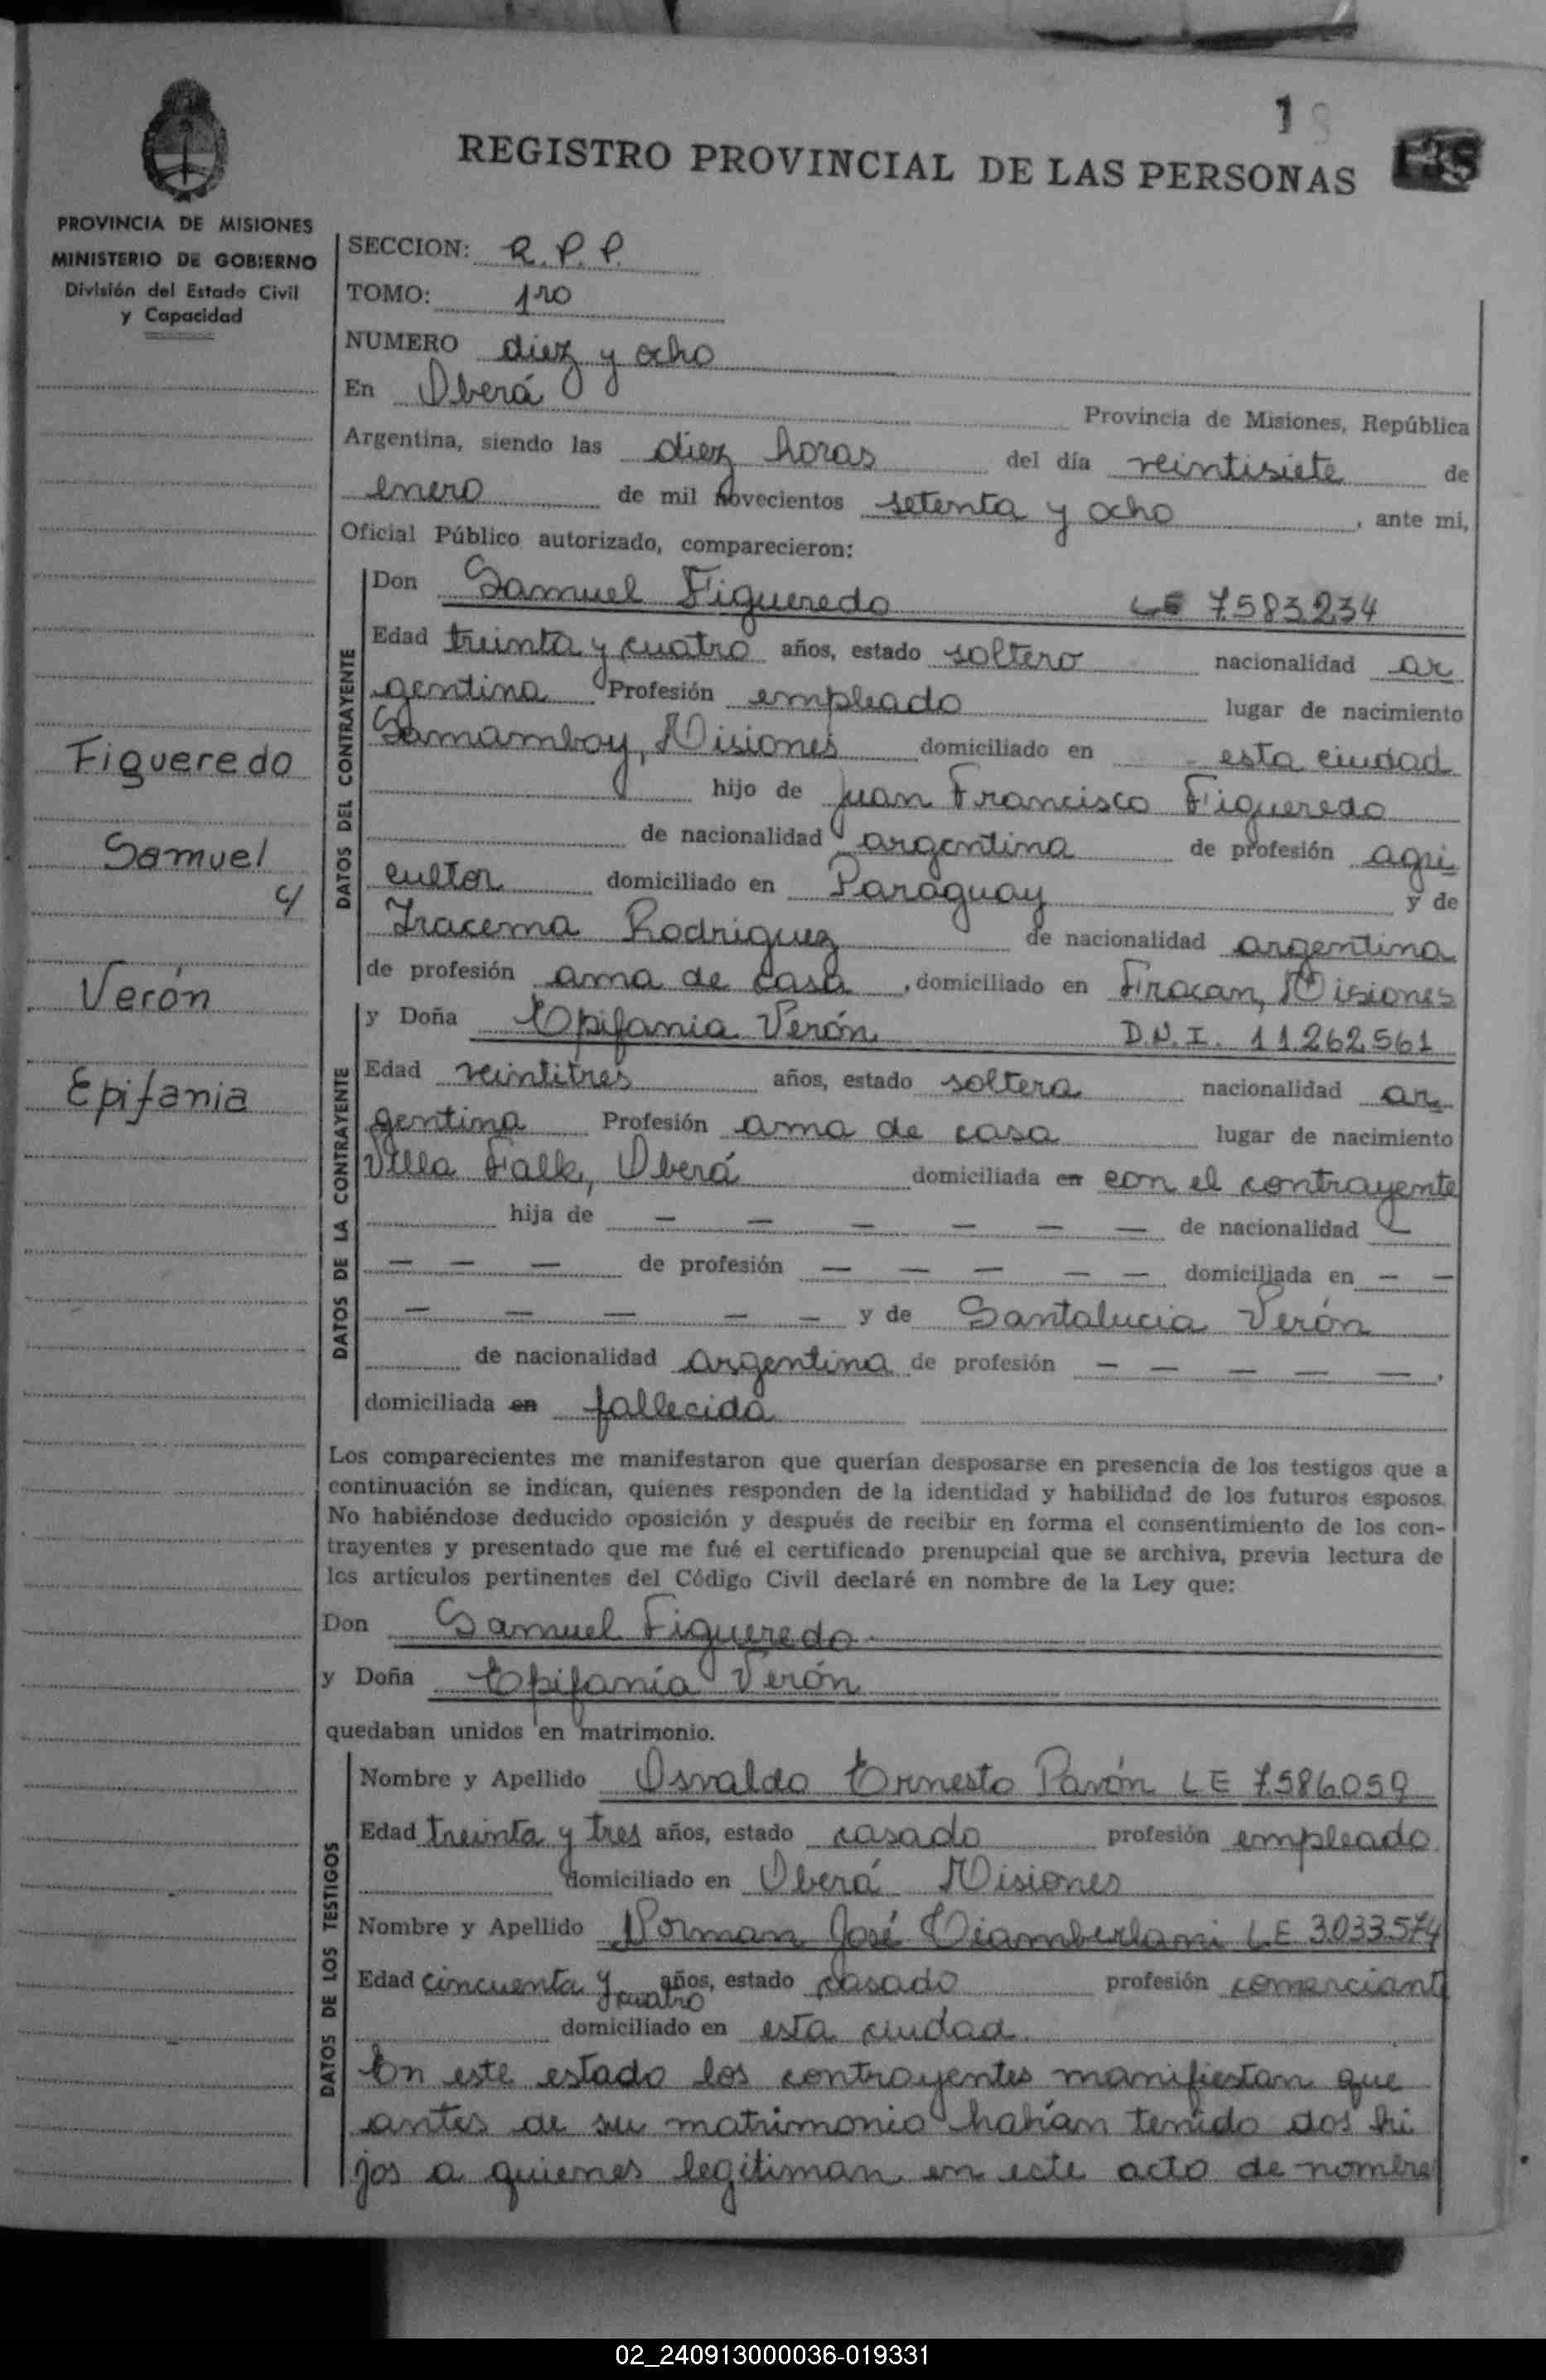 1
REGISTRO PROVINCIAL DE LAS PERSONAS
PROVINCIA DE MISIONES
MINISTERIO DE GOBIERNO
División del Estado Civil
y Capacidad
SECCION: R.P.P.
TOMO: 1ro
NUMERO diez y ocho
En Oberá Provincia de Misiones, República
Argentina, siendo las diez horas del día veintisiete de
enero de mil novecientos setenta y ocho, ante mi,
Oficial Público autorizado, comparecieron:
DATOS DEL CONTRAYENTE
Don Samuel Figueredo LE 7.583.234
Edad treinta y cuatro años, estado soltero nacionalidad ar
gentina Profesión empleado lugar de nacimiento
Samamboy, Misiones domiciliado en esta ciudad
hijo de Juan Francisco Figueredo
de nacionalidad argentina de profesión agri
cultor domiciliado en Paraguay y de
Iracema Rodriguez de nacionalidad argentina
de profesión ama de casa, domiciliado en Fracan, Misiones
Figueredo
Samuel
c/
Verón
Epifania
DATOS DE LA CONTRAYENTE
y Doña Epifania Verón D.N.I. 11.262.561
Edad veintitres años, estado soltera nacionalidad ar
gentina Profesión ama de casa lugar de nacimiento
Villa Falk, Oberá domiciliada en con el contrayente
hija de — — — — — — de nacionalidad —
— — — de profesión — — — — — domiciliada en — —
— — — — — y de Santalucia Verón
de nacionalidad argentina de profesión — — — — —,
domiciliada en fallecida
Los comparecientes me manifestaron que querían desposarse en presencia de los testigos que a
continuación se indican, quienes responden de la identidad y habilidad de los futuros esposos.
No habiéndose deducido oposición y después de recibir en forma el consentimiento de los con-
trayentes y presentado que me fué el certificado prenupcial que se archiva, previa lectura de
los artículos pertinentes del Código Civil declaré en nombre de la Ley que:
Don Samuel Figueredo
y Doña Epifanía Verón
quedaban unidos en matrimonio.
DATOS DE LOS TESTIGOS
Nombre y Apellido Osvaldo Ernesto Pavón LE 7.586.059
Edad treinta y tres años, estado casado profesión empleado
domiciliado en Oberá Misiones
Nombre y Apellido Norman José L.E. 3.033.574
Edad cincuenta y cuatro años, estado casado profesión comerciante
domiciliado en esta ciudad.
En este estado los contrayentes manifiestan que
antes de su matrimonio habían tenido dos hi
jos a quienes legitiman en este acto de nombre
02_240913000036-019331